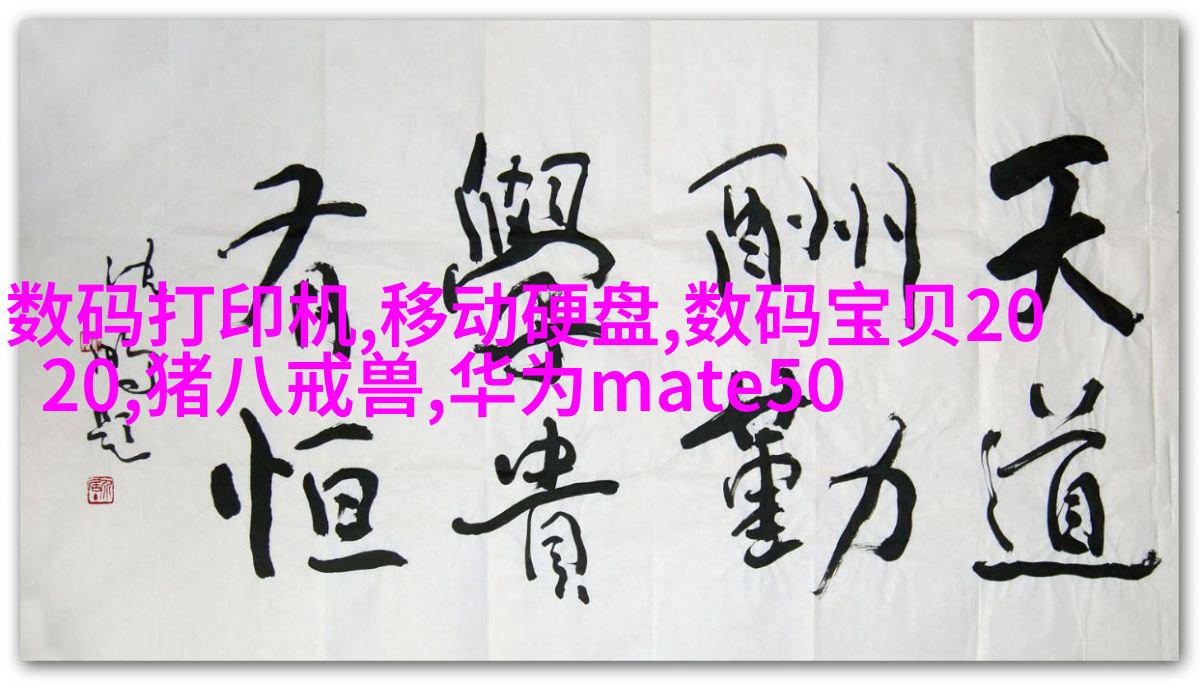 天道
酬勤
學貴
有恒
沈鹏题
数码打印机,移动硬盘,数码宝贝20
20,猪八戒兽,华为mate50